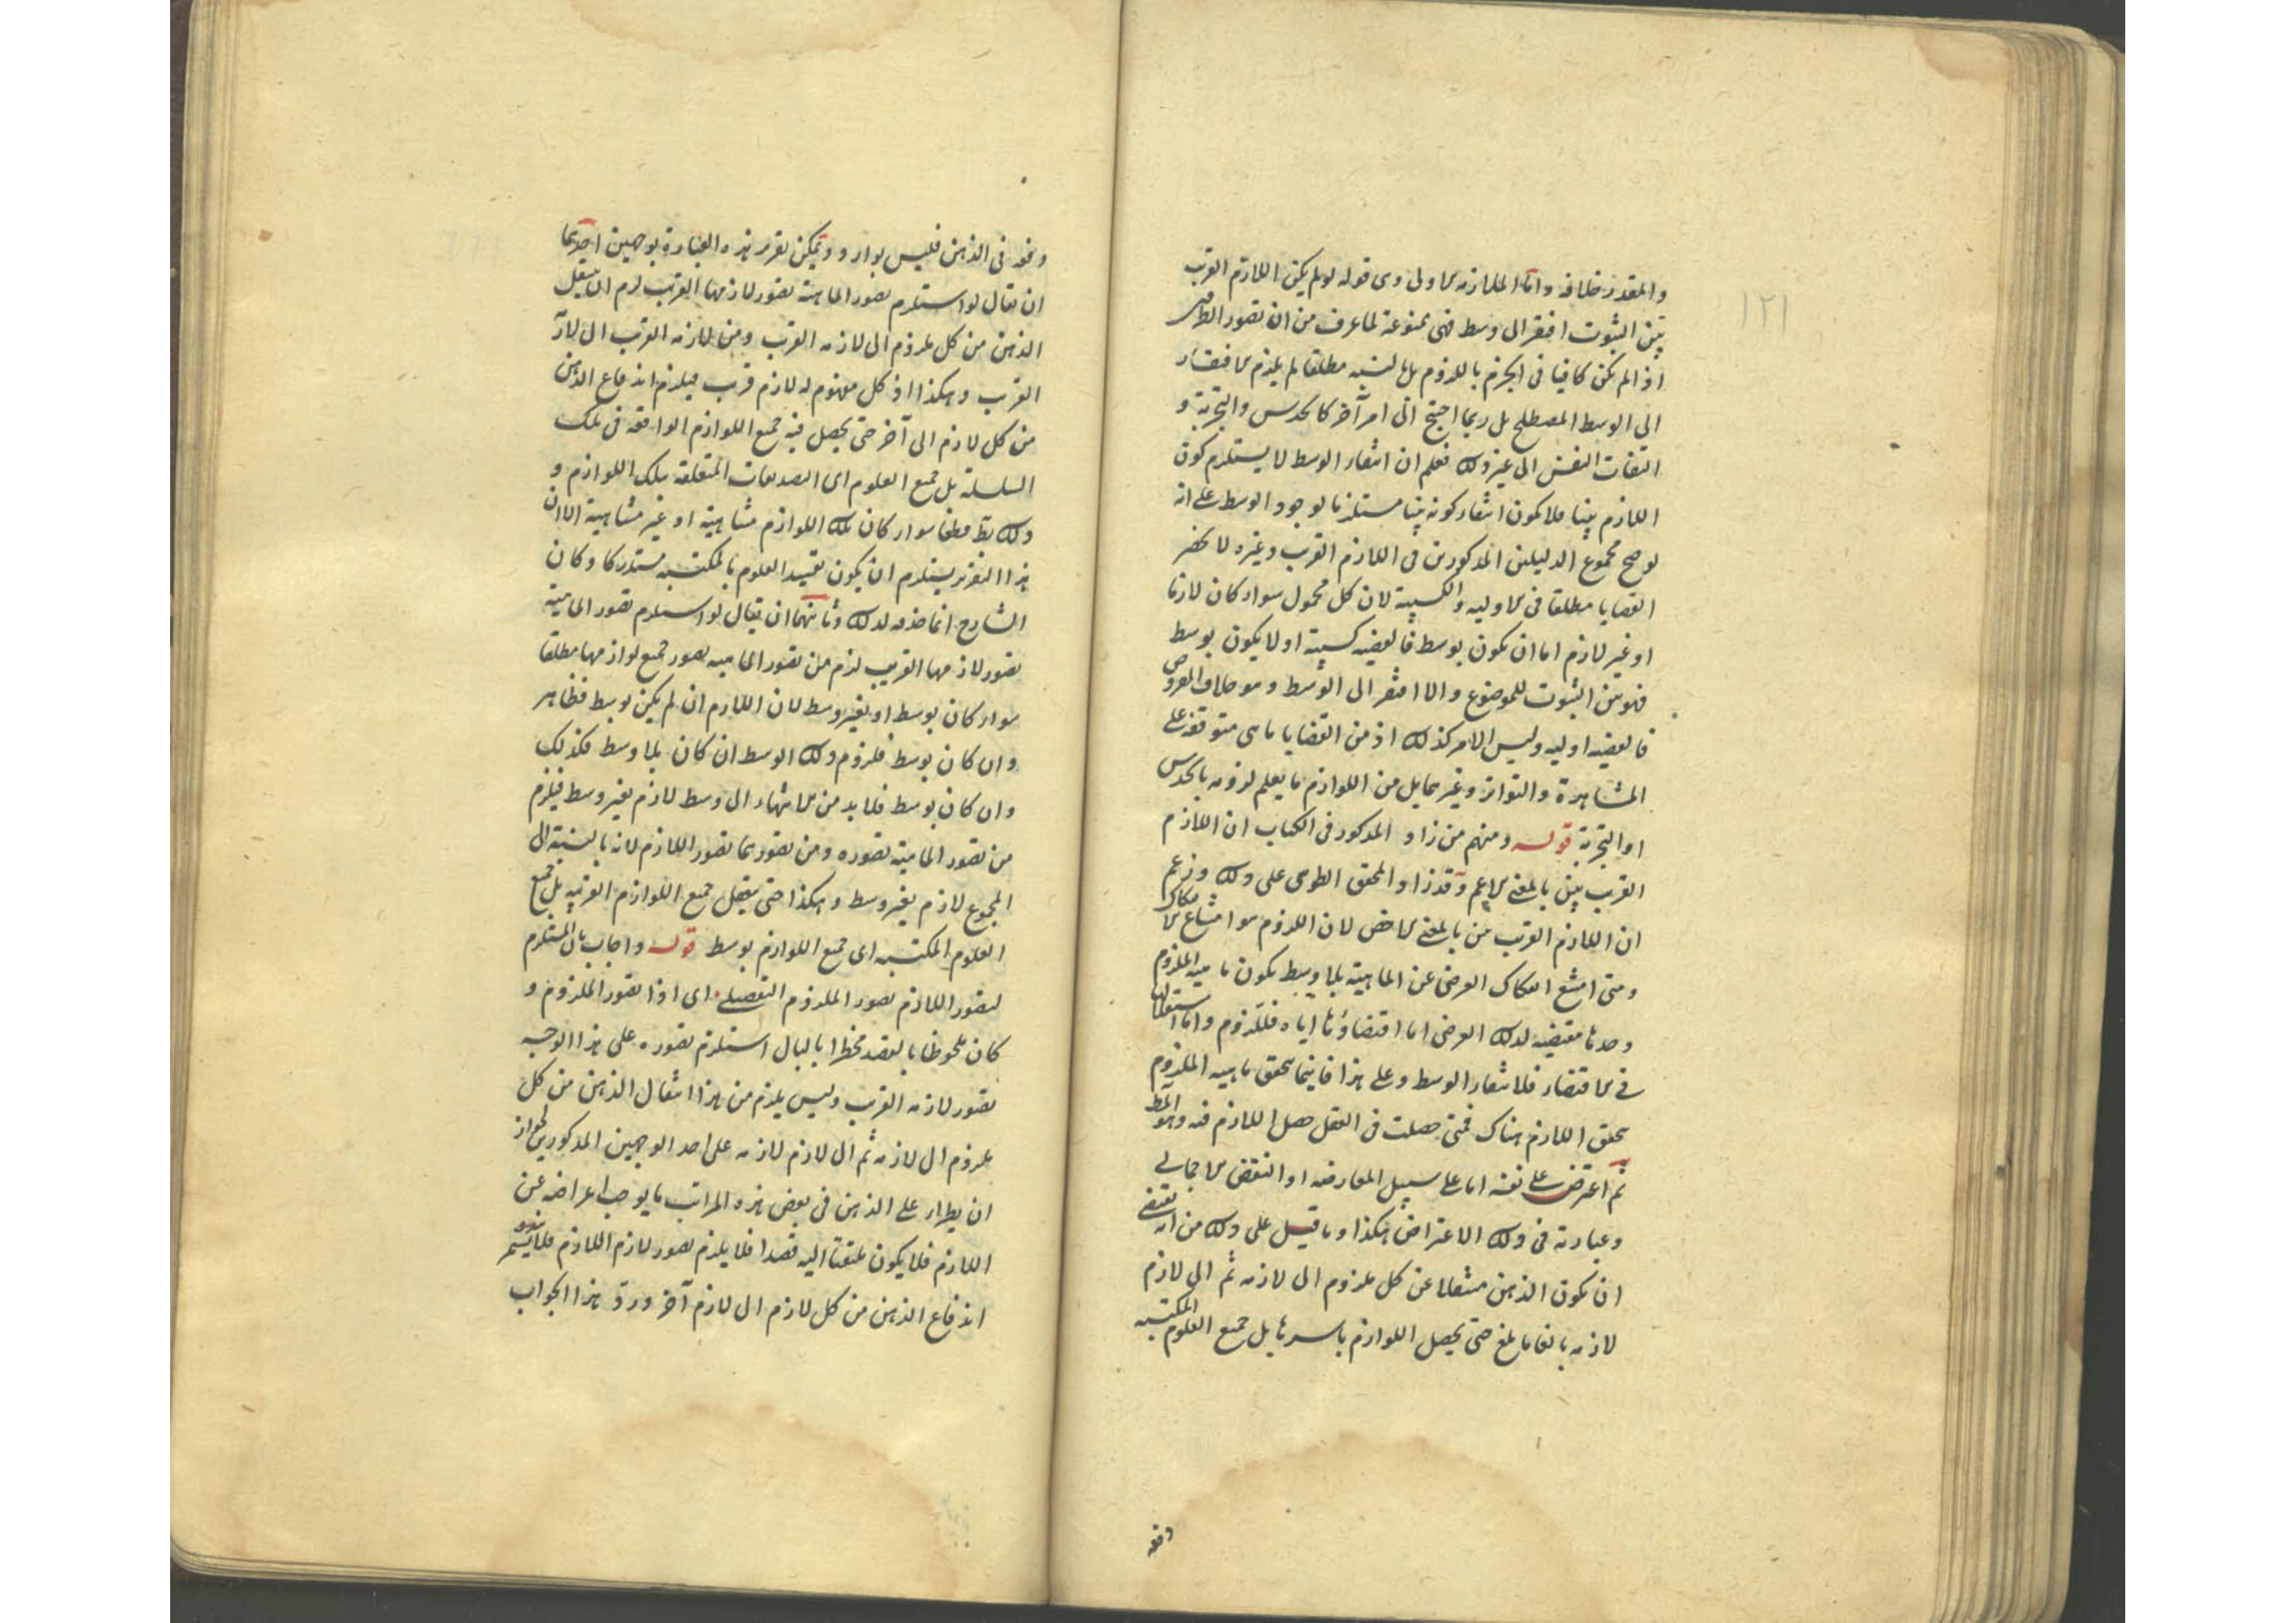 ١٢١
والمقدر خلافه واما الملازمة الاولى وهى قوله لو لم يكن اللازم القريب
بين الثبوت افتقر الى وسط فهى ممنوعة لما عرف من ان تصور الطرفين
اذا لم يكن كافيا فى الجزم باللزوم بل بالنسبة مطلقا لم يلزم الافتقار
الى الوسط المصطلح بل ربما احتيج الى امر آخر كالحدس والتجربة و
التفات النفس الى غير ذلك فعلم ان انتفاء الوسط لا يستلزم كون
اللازم بينا فلا يكون انتفاء كونه بينا مستلزما لوجود الوسط على انه
لو صح مجموع الدليلين المذكورين فى اللازم القريب وغيره لانحصر
القضايا مطلقا فى الاوليه والكسبية لان كل محمول سواء كان لازما
او غير لازم اما ان يكون بوسط فالقضيه كسبية او لا يكون بوسط
فهو بين الثبوت للموضوع والا افتقر الى الوسط وهو خلاف المفروض
فالقضيه اوليه وليس الامر كذلك اذ من القضايا ما هى متوقفة على
المشاهدة والتواتر وغيرهما بل من اللوازم ما يعلم لزومه بالحدس
او التجربة قوله ومنهم من زاد المذكور فى الكتاب ان اللازم
القريب بين بالمعنى الاعم وقد زاد المحقق الطوسى على ذلك وزعم
ان اللازم القريب بين بالمعنى الاخص لان اللزوم هو امتناع الانفكاك
ومتى امتنع انفكاك العرضى عن الماهية بلا وسط يكون ماهيه الملزوم
وحدها مقتضيه لذلك العرضى اما اقتضاؤها اياه فللزوم واما استقلالها
فى الاقتضاء فلانتفاء الوسط وعلى هذا فاينما يتحقق ماهيه الملزوم
يتحقق اللازم هناك فمتى حصلت فى العقل حصل اللازم فيه وهو المط
ثم اعترض على نفسه اما على سبيل المعارضه او النقض الاجمالى
وعبارته فى ذلك الاعتراض هكذا وما قيل على ذلك من انه يقتضى
ان يكون الذهن منتقلا عن كل ملزوم الى لازمه ثم الى لازم
لازمه بالغا ما بلغ حتى يحصل اللوازم باسرها بل جميع العلوم المكتسبه
دفعه
ونحوه فى الذهن فليس بوارد ويمكن تقرير هذه العبارة بوجهين احدهما
ان يقال لو استلزم تصور الماهية تصور لازمها القريب لزم ان ينتقل
الذهن من كل ملزوم الى لازمه القريب ومن لازمه القريب الى لازمه
القريب وهكذا اذ كل مفهوم له لازم قريب فيلزم اندفاع الذهن
من كل لازم الى آخر حتى يحصل فيه جميع اللوازم الواقعة فى تلك
السلسلة بل جميع العلوم اى التصديقات المتعلقة بتلك اللوازم و
ذلك بط قطعا سواء كان تلك اللوازم متناهية او غير متناهية الا ان
هذا التقرير يستلزم ان يكون تقييد العلوم بالمكتسبه مستدركا وكان
الشارح انما حذفه لذلك وثانيهما ان يقال لو استلزم تصور الماهية
تصور لازمها القريب لزم من تصور الماهيه تصور جميع لوازمها مطلقا
سواء كان بوسط او بغير وسط لان اللازم ان لم يكن بوسط فظاهر
وان كان بوسط فلزوم ذلك الوسط ان كان بلا وسط فكذلك
وان كان بوسط فلا بد من الانتهاء الى وسط لازم بغير وسط فيلزم
من تصور الماهية تصوره ومن تصورهما تصور اللازم لانه بالنسبة الى
المجموع لازم بغير وسط وهكذا حتى يتعقل جميع اللوازم القريبه بل جميع
العلوم المكتسبه اى جميع اللوازم بوسط قوله واجاب بان المستلزم
لتصور اللازم تصور الملزوم التفصيلى اى اذا تصور الملزوم و
كان ملحوظا بالقصد مخطرا بالبال استلزم تصوره على هذا الوجه
تصور لازمه القريب وليس يلزم من هذا انتقال الذهن من كل
ملزوم الى لازمه ثم الى لازم لازمه على احد الوجهين المذكورين لجواز
ان يطرأ على الذهن فى بعض هذه المراتب ما يوجب اعراضه عن
اللازم فلا يكون ملتفتا اليه قصدا فلا يلزم تصور لازم اللازم فلا يستمر
اندفاع الذهن من كل لازم الى لازم آخر ورد هذا الجواب